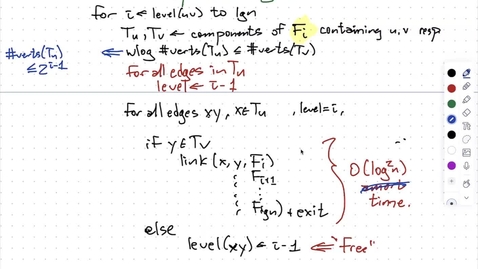 for i ← level(uv) to lgn
Tu, Tv ← components of Fi containing u,v resp
wlog #verts(Tu) ≤ #verts(Tv)
#verts(Tu) ≤ 2^i-1
For all edges in Tu
level ← i-1
for all edges xy, x∈Tu , level=i,
if y∈Tv
link(x, y, Fi)
Fi+1
⋮
Flgn) + exit
O(log²n)
time.
else
level(xy) ← i-1 ⇐ "free"